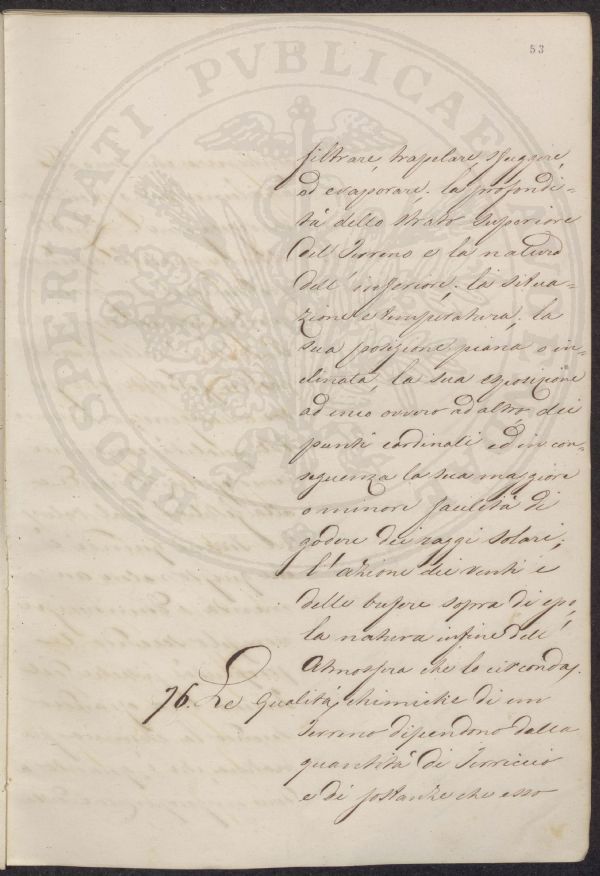 53
filtrare, trapelare, sfuggire,
ed evaporare. la profondi-
tà dello strato superiore
del Terreno e la natura
dell' inferiore. la situa-
zione e temperatura. la
sua posizione piana o in-
clinata, la sua esposizione
ad uno ovvero ad altro dei
punti cardinali ed in con-
seguenza la sua maggiore
o minore facilità di
godere dei raggi solari;
l'azione dei venti e
delle bufere sopra di esso,
la natura infine dell'
Atmosfera che lo circonda.
76. Le qualità chimiche di un
Terreno dipendono dalla
quantità di Terriccio
e di sostanze che esso
PROSPERITATI PVBLICAE